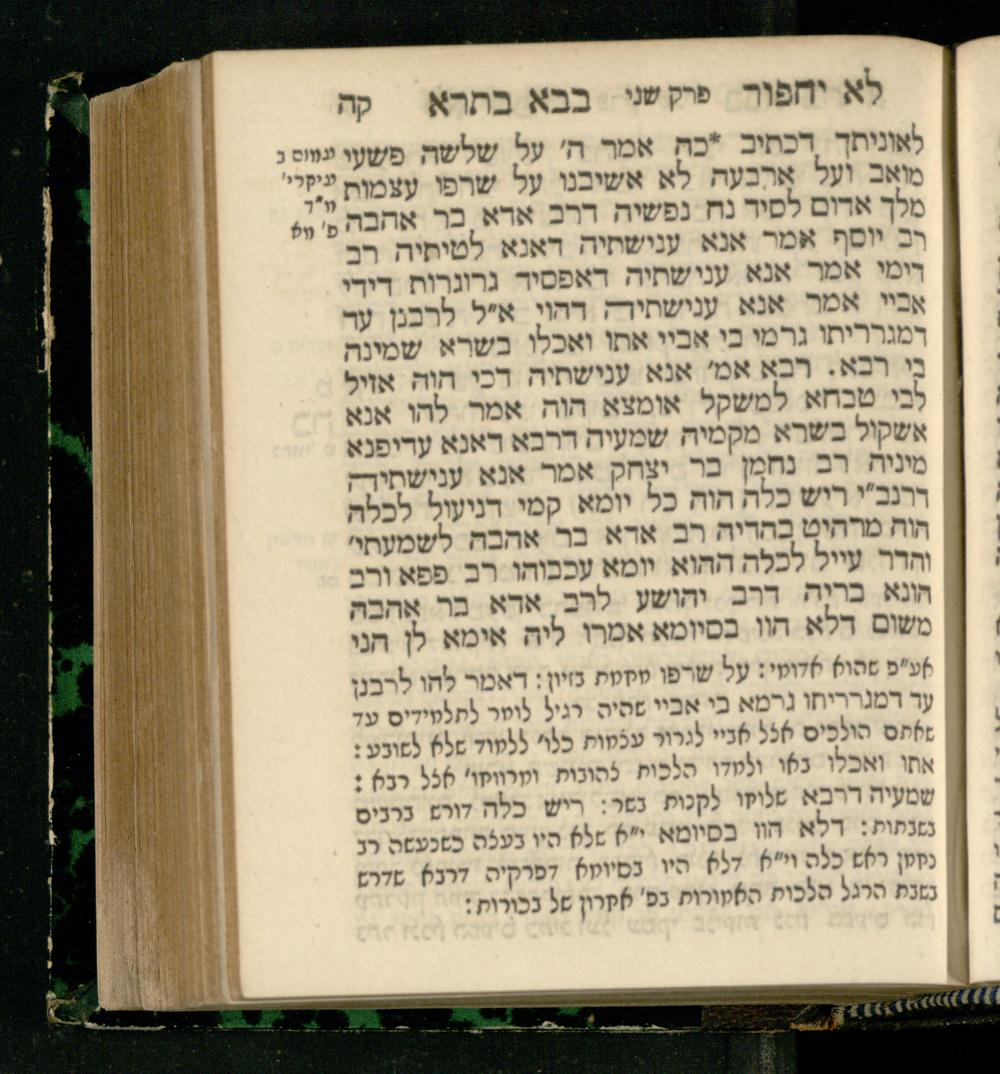 לא יחפור פרק שני בבא בתרא קה
לאוניתך דכתיב *כה אמר ה׳ על שלשה פשעי
מואב ועל ארבעה לא אשיבנו על שרפו עצמות
מלך אדום לסיד נח נפשיה דרב אדא בר אהבה
רב יוסף אמר אנא ענישתיה דאנא לטיתיה רב
דימי אמר אנא ענישתיה דאפסיד גרוגרות דידי
אביי אמר אנא ענישתיה דהוי א״ל לרבנן עד
דמגרריתו גרמי בי אביי אתו ואכלו בשרא שמינה
בי רבא. רבא אמ׳ אנא ענישתיה דכי הוה אזיל
לבי טבחא למשקל אומצא הוה אמר להו אנא
אשקול בשרא מקמיה שמעיה דרבא דאנא עדיפנא
מיניה רב נחמן בר יצחק אמר אנא ענישתיה
דרנב״י ריש כלה הוה כל יומא קמי דניעול לכלה
הוה מרהיט בהדיה רב אדא בר אהבה לשמעתי׳
והדר עייל לכלה ההוא יומא עכבוהו רב פפא ורב
הונא בריה דרב יהושע לרב אדא בר אהבה
משום דלא הוו בסיומא אמרו ליה אימא לן הני
עמוס ב
ועיקרי׳
מ״ד
ס׳ מא
אע״פ שהוא אדומי: על שרפו מקמת בזיון: דאמר להו לרבנן
עד דמגרריתו גרמא בי אביי שהיה רגיל לומר לתלמידים עד
שאתם הולכים אצל אביי לגרור עצמות כלו׳ ללמוד שלא לשובע:
אתו ואכלו באו ולמדו הלכות צהובות ומרווחו׳ אצל רבא:
שמעיה דרבא שלוחו לקנות בשר: ריש כלה דורש ברבים
בשבתות: דלא הוו בסיומא י״א שלא היו בעצה כשנעשה רב
נחמן ראש כלה וי״א דלא היו בסיומא דפרקיה דרבא שדרש
בשבת הרגל הלכות האמורות בפ׳ אחרון של בכורות: